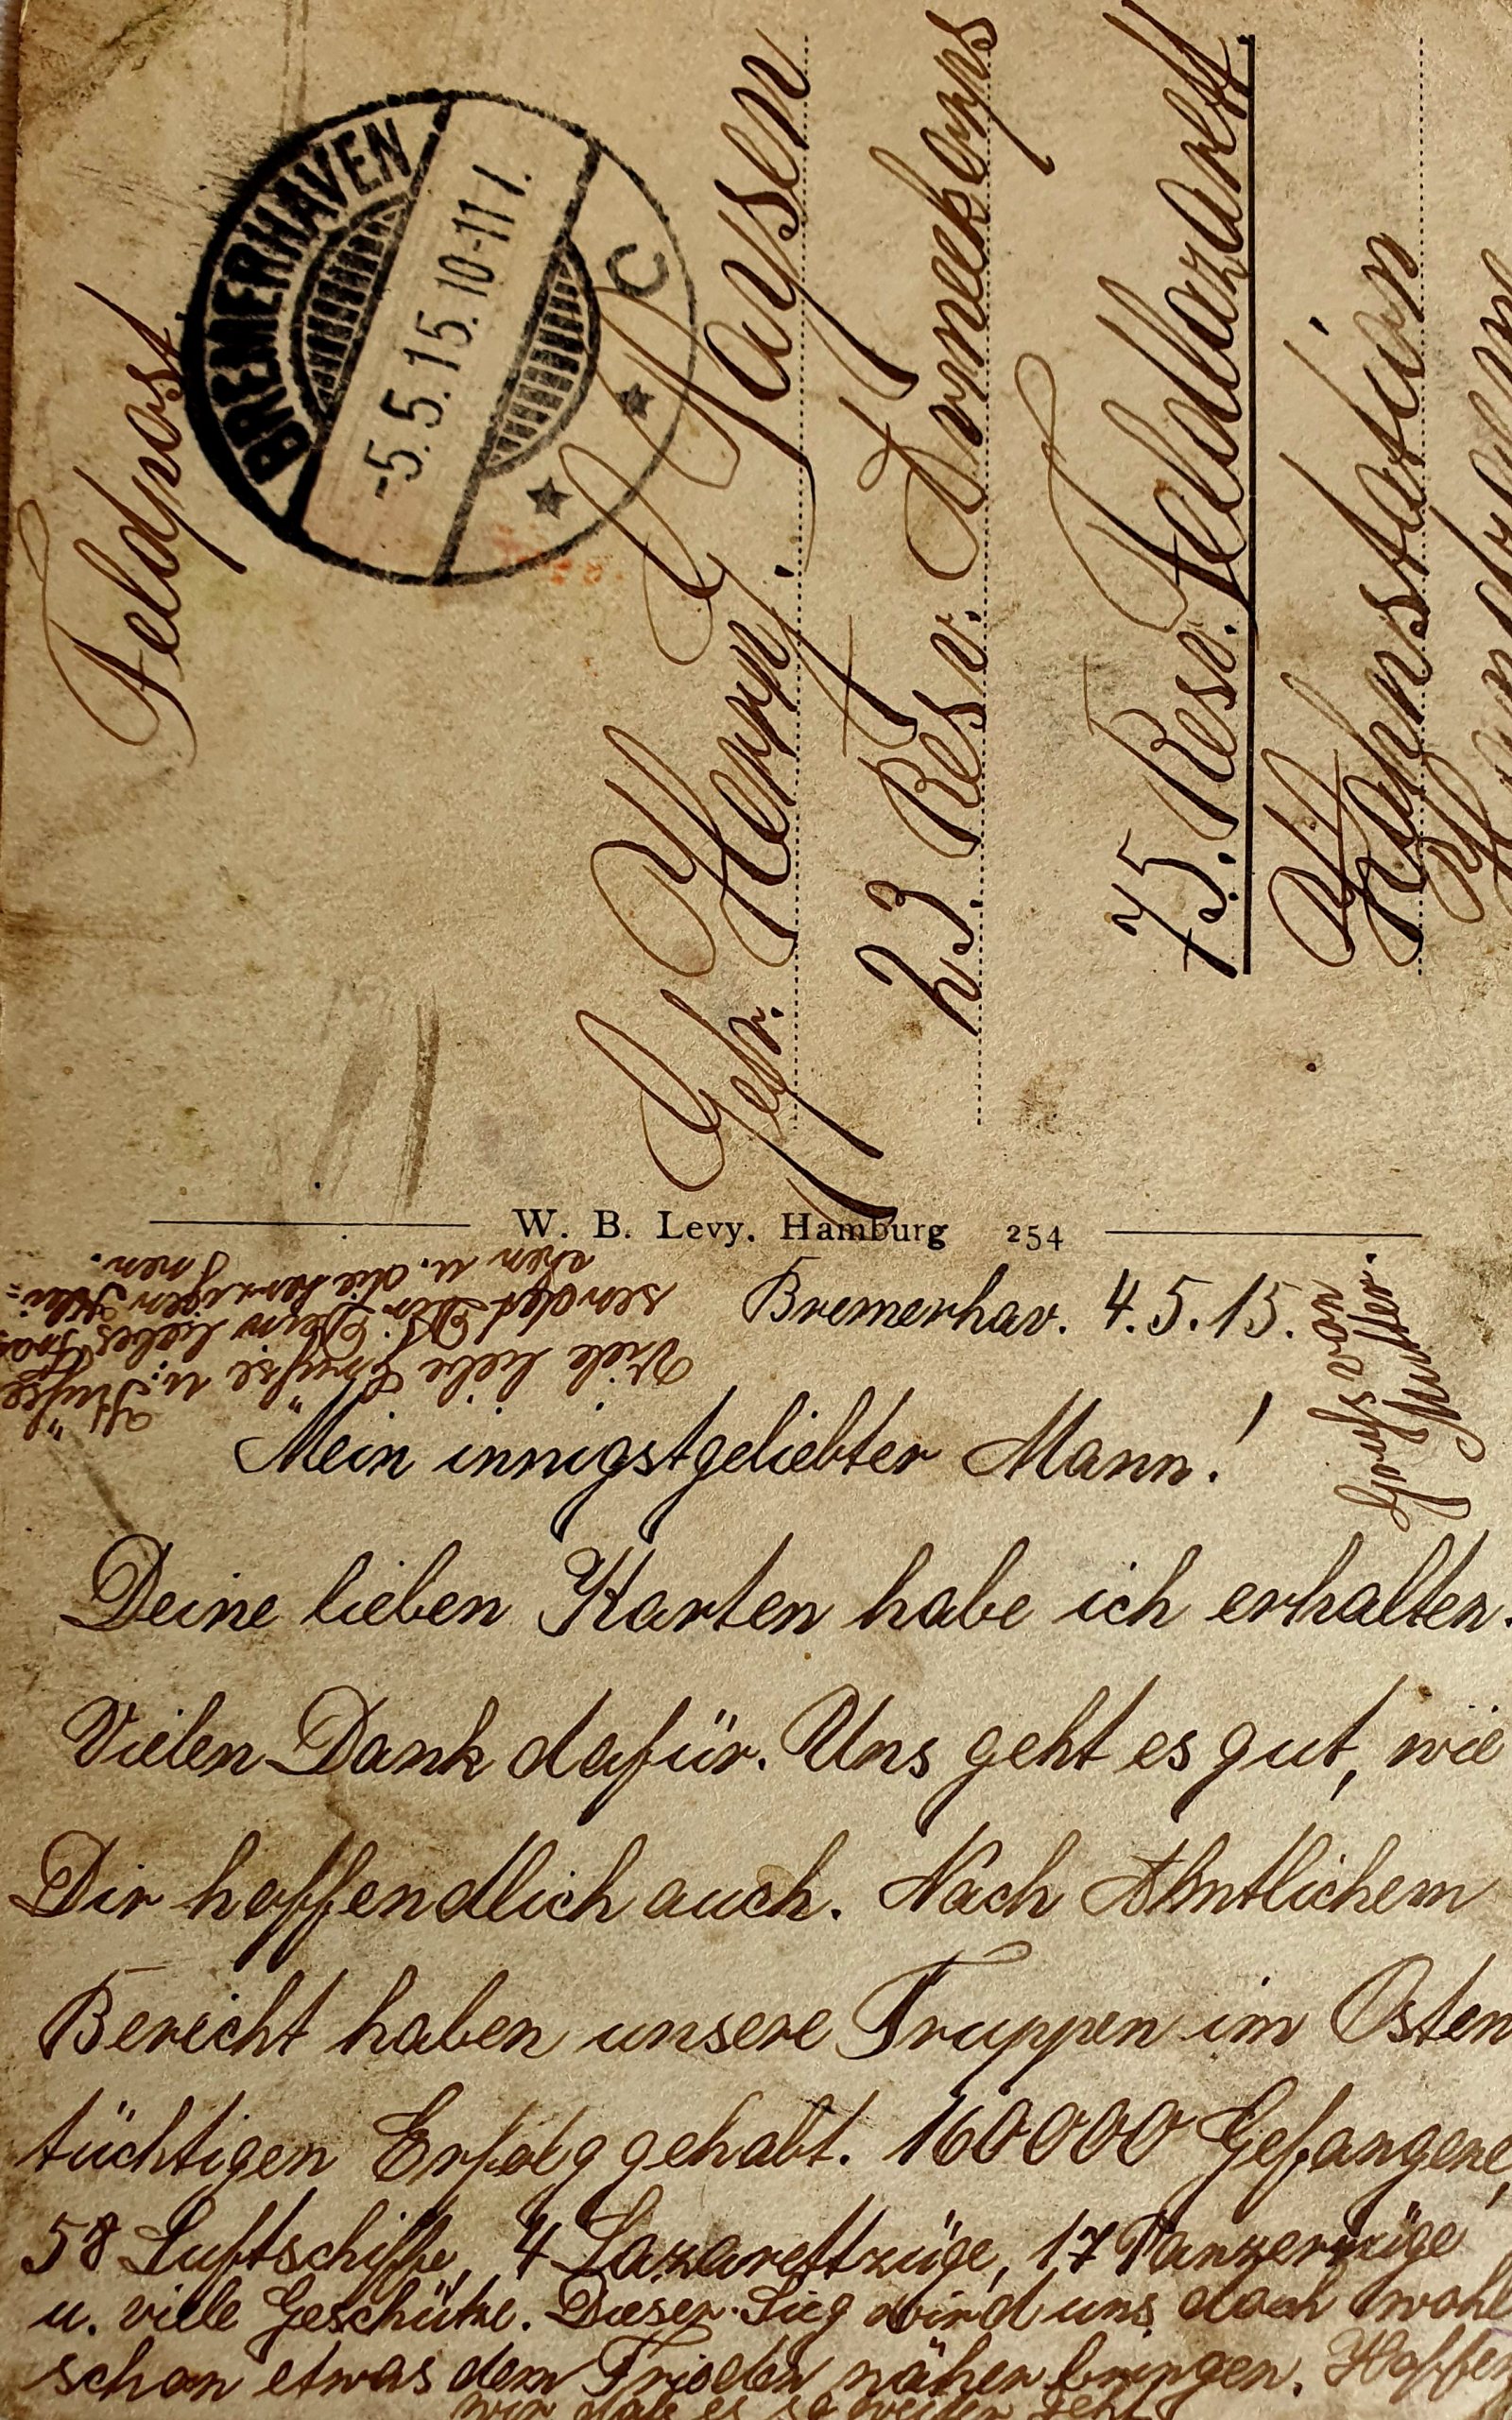 Feldpost
BREMERHAVEN
-5.5.15.10-11 V.
* * C
Gefr. Herrn Paysen
23. Res. Armeekorps
75. Resv. Feldlazarett
Bahnstation
W. B. Levy, Hamburg 254
Bremerhav. 4.5.15.
Mein innigstgeliebter Mann!
Deine lieben Karten habe ich erhalten.
Vielen Dank dafür. Uns geht es gut, wie
Dir hoffendlich auch. Nach Ahmtlichem
Bericht haben unsere Truppen im Osten
tüchtigen Erfolg gehabt. 160000 Gefangene,
58 Luftschiffe, 4 Lazarettzüge, 17 Panzerzüge
u. viele Geschütze. Dieser Sieg wird uns doch wohl
schon etwas dem Frieden näher bringen. Hoffen
wir daß es so weiter geht
Viele liebe Grüße u. Küsse
sendet Dir Dein liebes
chen u. die herzigen Klei-
nen.
Gruß von
Mutter.